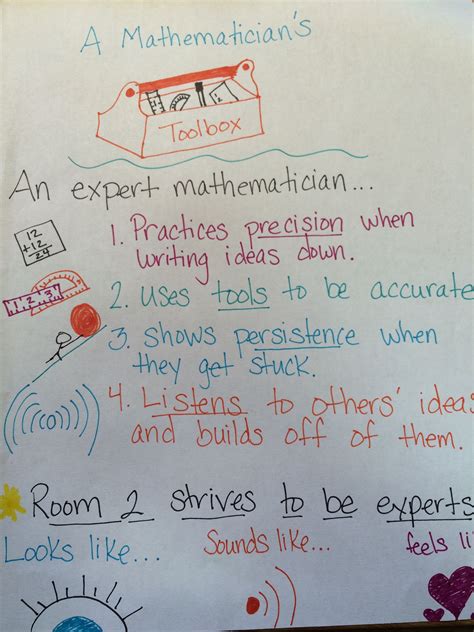 A Mathematician's
Toolbox
An expert mathematician...
12
+12
24
1. Practices precision when
writing ideas down.
2. Uses tools to be accurate
3. Shows persistence when
they get stuck.
4. Listens to others' ideas
and builds off of them.
Room 2 strives to be experts
Looks like...
Sounds like...
feels li